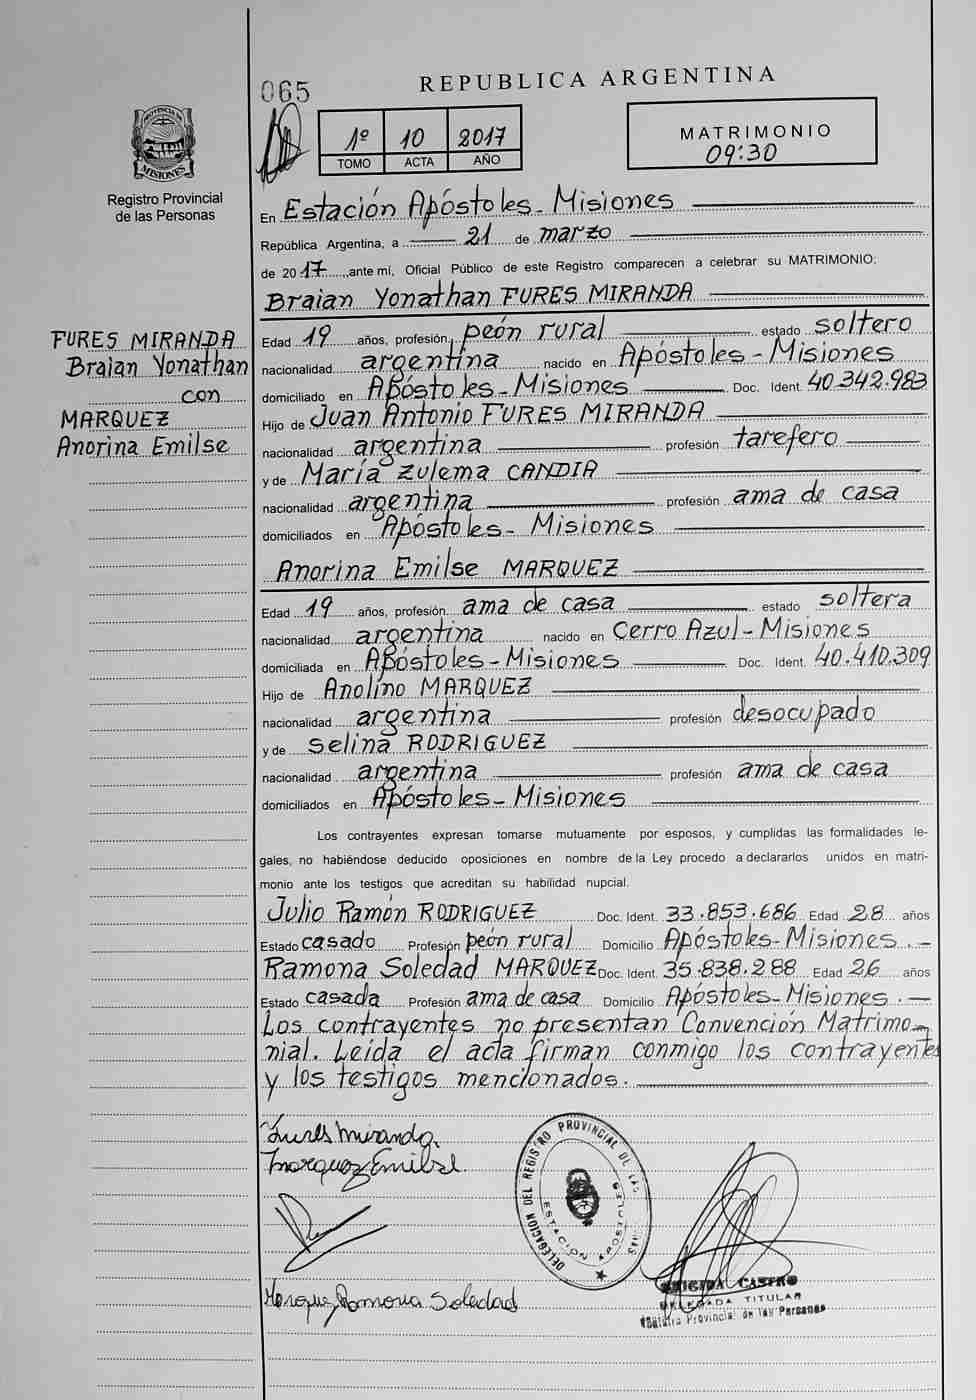 065
REPUBLICA ARGENTINA
PROVINCIA DE
MISIONES
Registro Provincial
de las Personas
1º 10 2017
TOMO ACTA AÑO
MATRIMONIO
09:30
En Estación Apóstoles - Misiones
República Argentina, a 21 de marzo
de 2017, ante mí, Oficial Público de este Registro comparecen a celebrar su MATRIMONIO:
Braian Yonathan FURES MIRANDA
FURES MIRANDA
Braian Yonathan
con
MARQUEZ
Anorina Emilse
Edad 19 años, profesión peón rural estado soltero
nacionalidad argentina nacido en Apóstoles - Misiones
domiciliado en Apóstoles - Misiones Doc. Ident. 40.342.983
Hijo de Juan Antonio FURES MIRANDA
nacionalidad argentina profesión tarefero
y de María Zulema CANDIA
nacionalidad argentina profesión ama de casa
domiciliados en Apóstoles - Misiones
Anorina Emilse MARQUEZ
Edad 19 años, profesión ama de casa estado soltera
nacionalidad argentina nacido en Cerro Azul - Misiones
domiciliada en Apóstoles - Misiones Doc. Ident. 40.410.309
Hijo de Anolino MARQUEZ
nacionalidad argentina profesión desocupado
y de Selina RODRIGUEZ
nacionalidad argentina profesión ama de casa
domiciliados en Apóstoles - Misiones
Los contrayentes expresan tomarse mutuamente por esposos, y cumplidas las formalidades le-
gales, no habiéndose deducido oposiciones en nombre de la Ley procedo a declararlos unidos en matri-
monio ante los testigos que acreditan su habilidad nupcial.
Julio Ramón RODRIGUEZ Doc. Ident. 33.853.686 Edad 28 años
Estado casado Profesión peón rural Domicilio Apóstoles - Misiones . -
Ramona Soledad MARQUEZ Doc. Ident. 35.838.288 Edad 26 años
Estado casada Profesión ama de casa Domicilio Apóstoles - Misiones . -
Los contrayentes no presentan Convención Matrimo-
nial. Leída el acta firman conmigo los contrayentes
y los testigos mencionados.
Fures Miranda.
Marquez Emilse.
DELEGACION DEL REGISTRO PROVINCIAL DE LAS
ESTACION APOSTOLES
Marquez Ramona Soledad
BRIGIDA CASTRO
DELEGADA TITULAR
Registro Provincial de las Personas